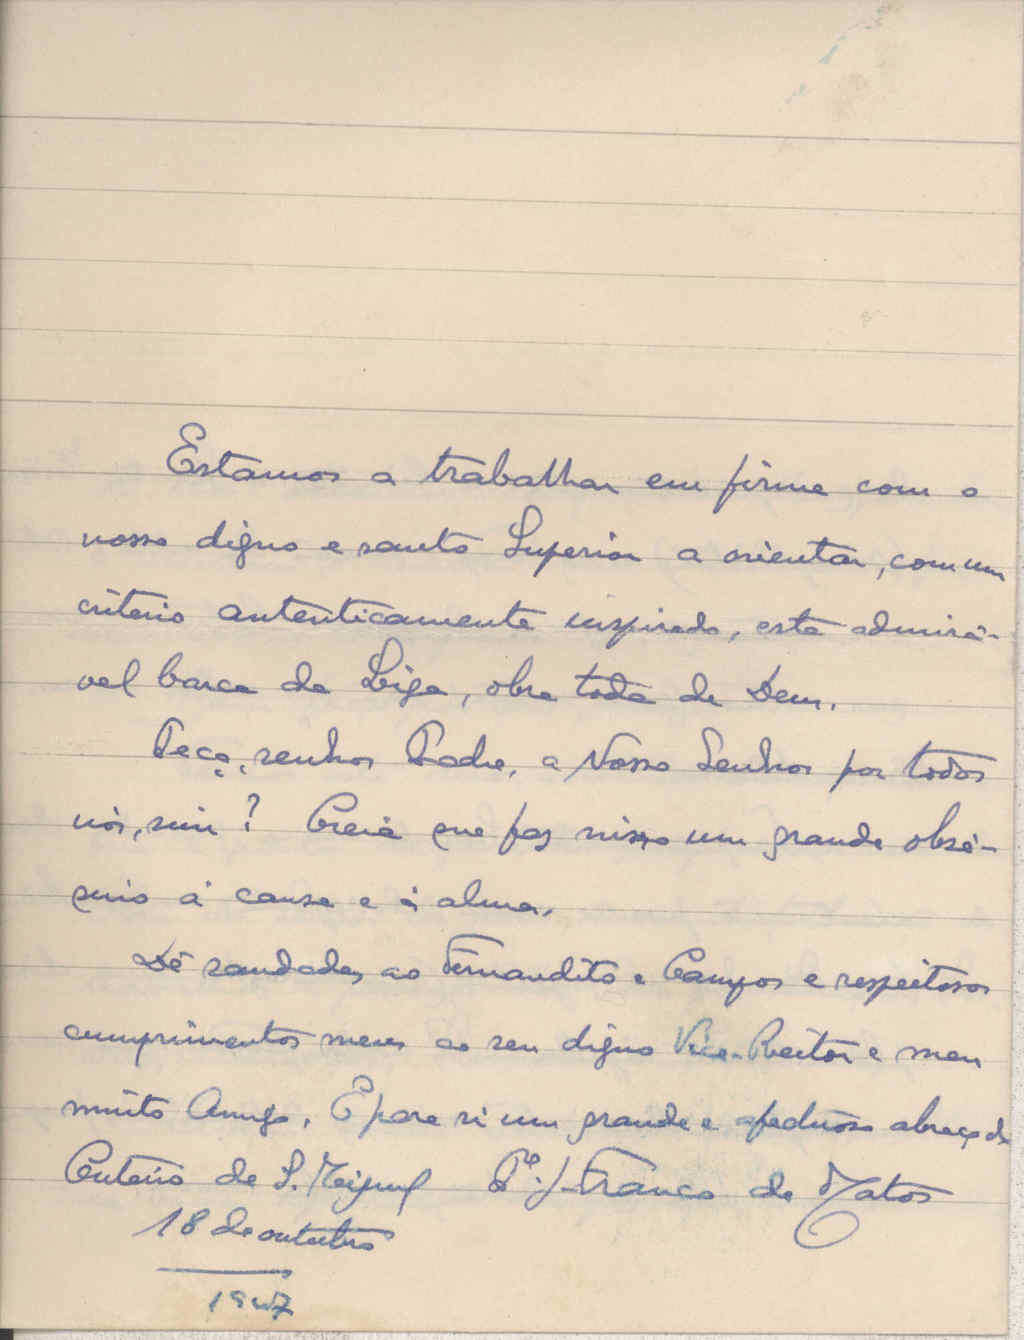 Estamos a trabalhar em firme com o
nosso digno e santo Superior a orientar, com um
critério autenticamente inspirado, esta admirá-
vel barca da Liga, obra toda de Deus.
Peça, senhor Padre, a Nosso Senhor por todos
nós, sim? Creia que faz nisso um grande obsé-
quio à causa e à alma.
Dê saudades ao Fernandito e Campos e respeitosos
cumprimentos meus ao seu digno Vice-Reitor e meu
muito Amigo. E para si um grande e afectuoso abraço do
Outeiro de S. Miguel P.e J. Franco de Matos
18 de outubro
1947